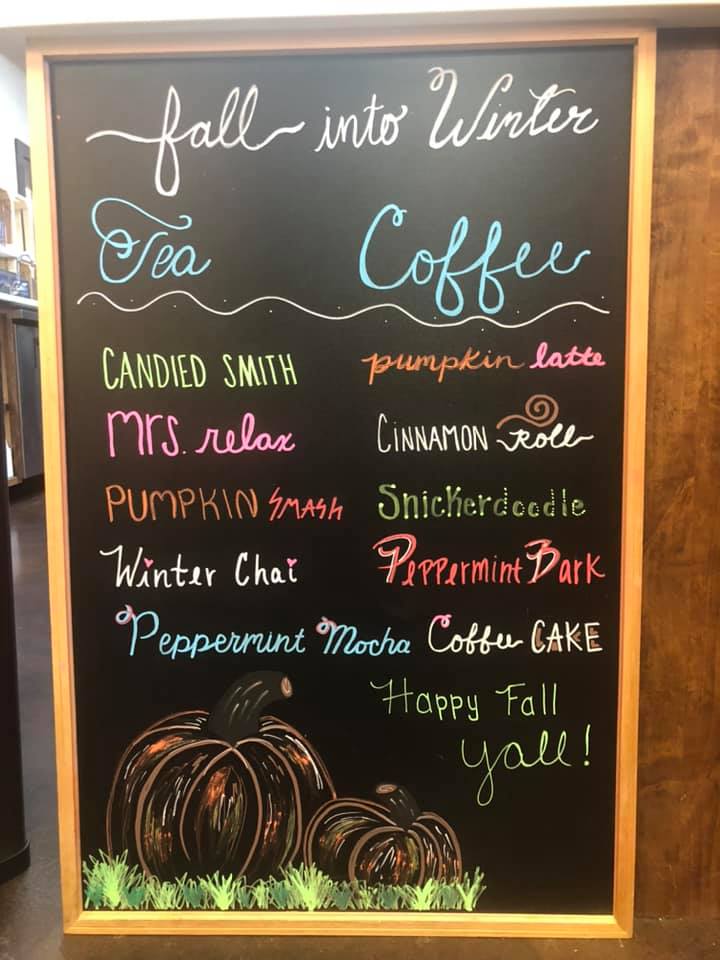 fall into Winter
Tea Coffee
CANDIED SMITH pumpkin latte
mrs. relax CINNAMON Roll
PUMPKIN SMASH Snickerdoodle
Winter Chai Peppermint Bark
Peppermint Mocha Coffee CAKE
Happy Fall
yall!